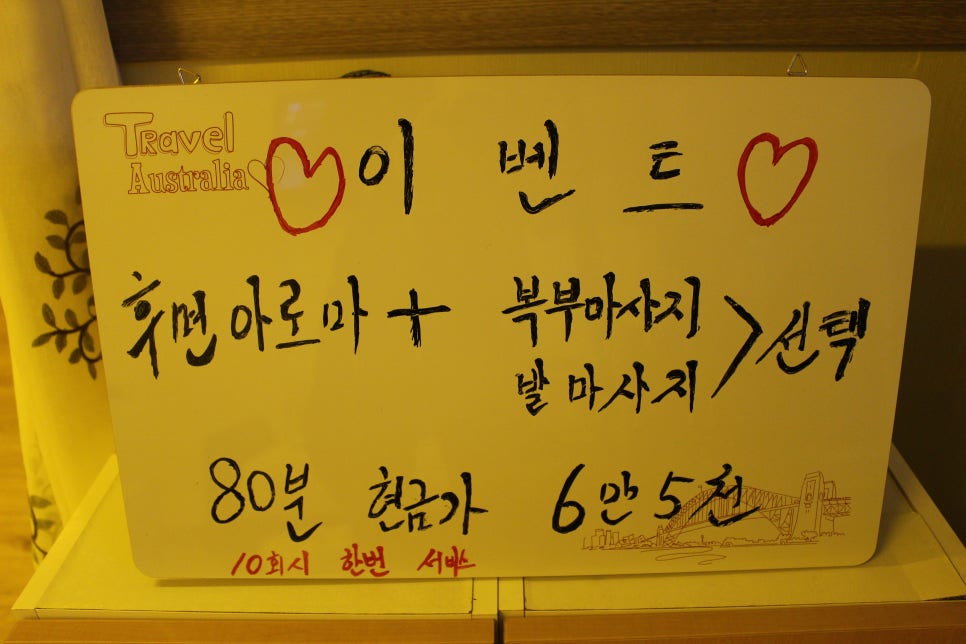 Travel
Australia
이벤트
후면아로마 + 복부마사지
발마사지 > 선택
80분 현금가 6만5천
10회시 한번 서비스